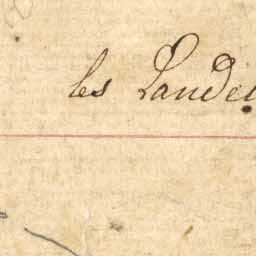 les Landes